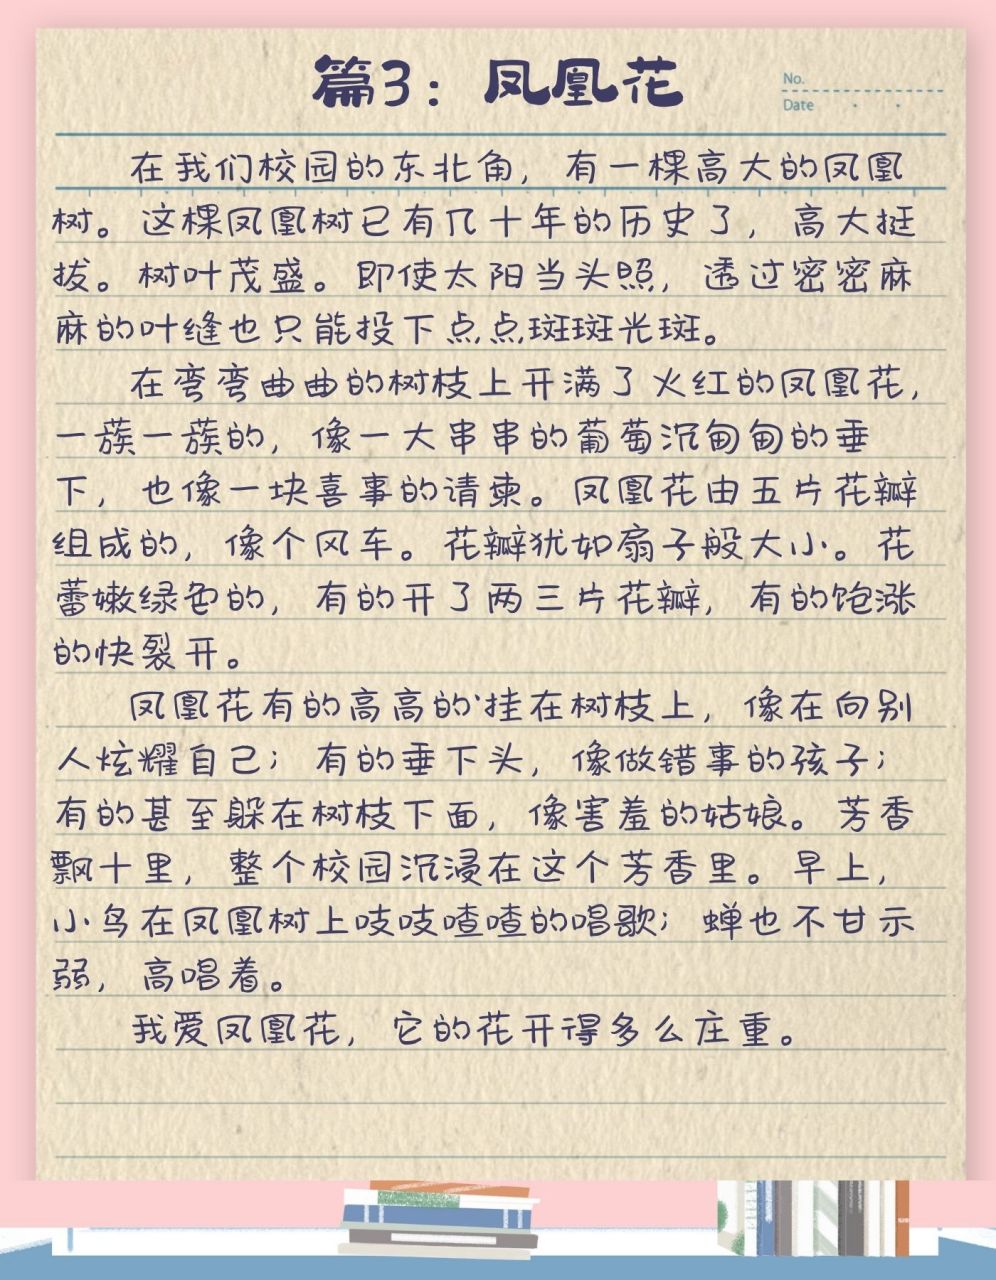 篇3：凤凰花
No.
Date
在我们校园的东北角，有一棵高大的凤凰
树。这棵凤凰树已有几十年的历史了，高大挺
拔。树叶茂盛。即使太阳当头照，透过密密麻
麻的叶缝也只能投下点点斑斑光斑。
在弯弯曲曲的树枝上开满了火红的凤凰花，
一蔟一蔟的，像一大串串的葡萄沉甸甸的垂
下，也像一块喜事的请柬。凤凰花由五片花瓣
组成的，像个风车。花瓣犹如扇子般大小。花
蕾嫩绿色的，有的开了两三片花瓣，有的饱涨
的快裂开。
凤凰花有的高高的挂在树枝上，像在向别
人炫耀自己；有的垂下头，像做错事的孩子；
有的甚至躲在树枝下面，像害羞的姑娘。芳香
飘十里，整个校园沉浸在这个芳香里。早上，
小鸟在凤凰树上吱吱喳喳的唱歌；蝉也不甘示
弱，高唱着。
我爱凤凰花，它的花开得多么庄重。